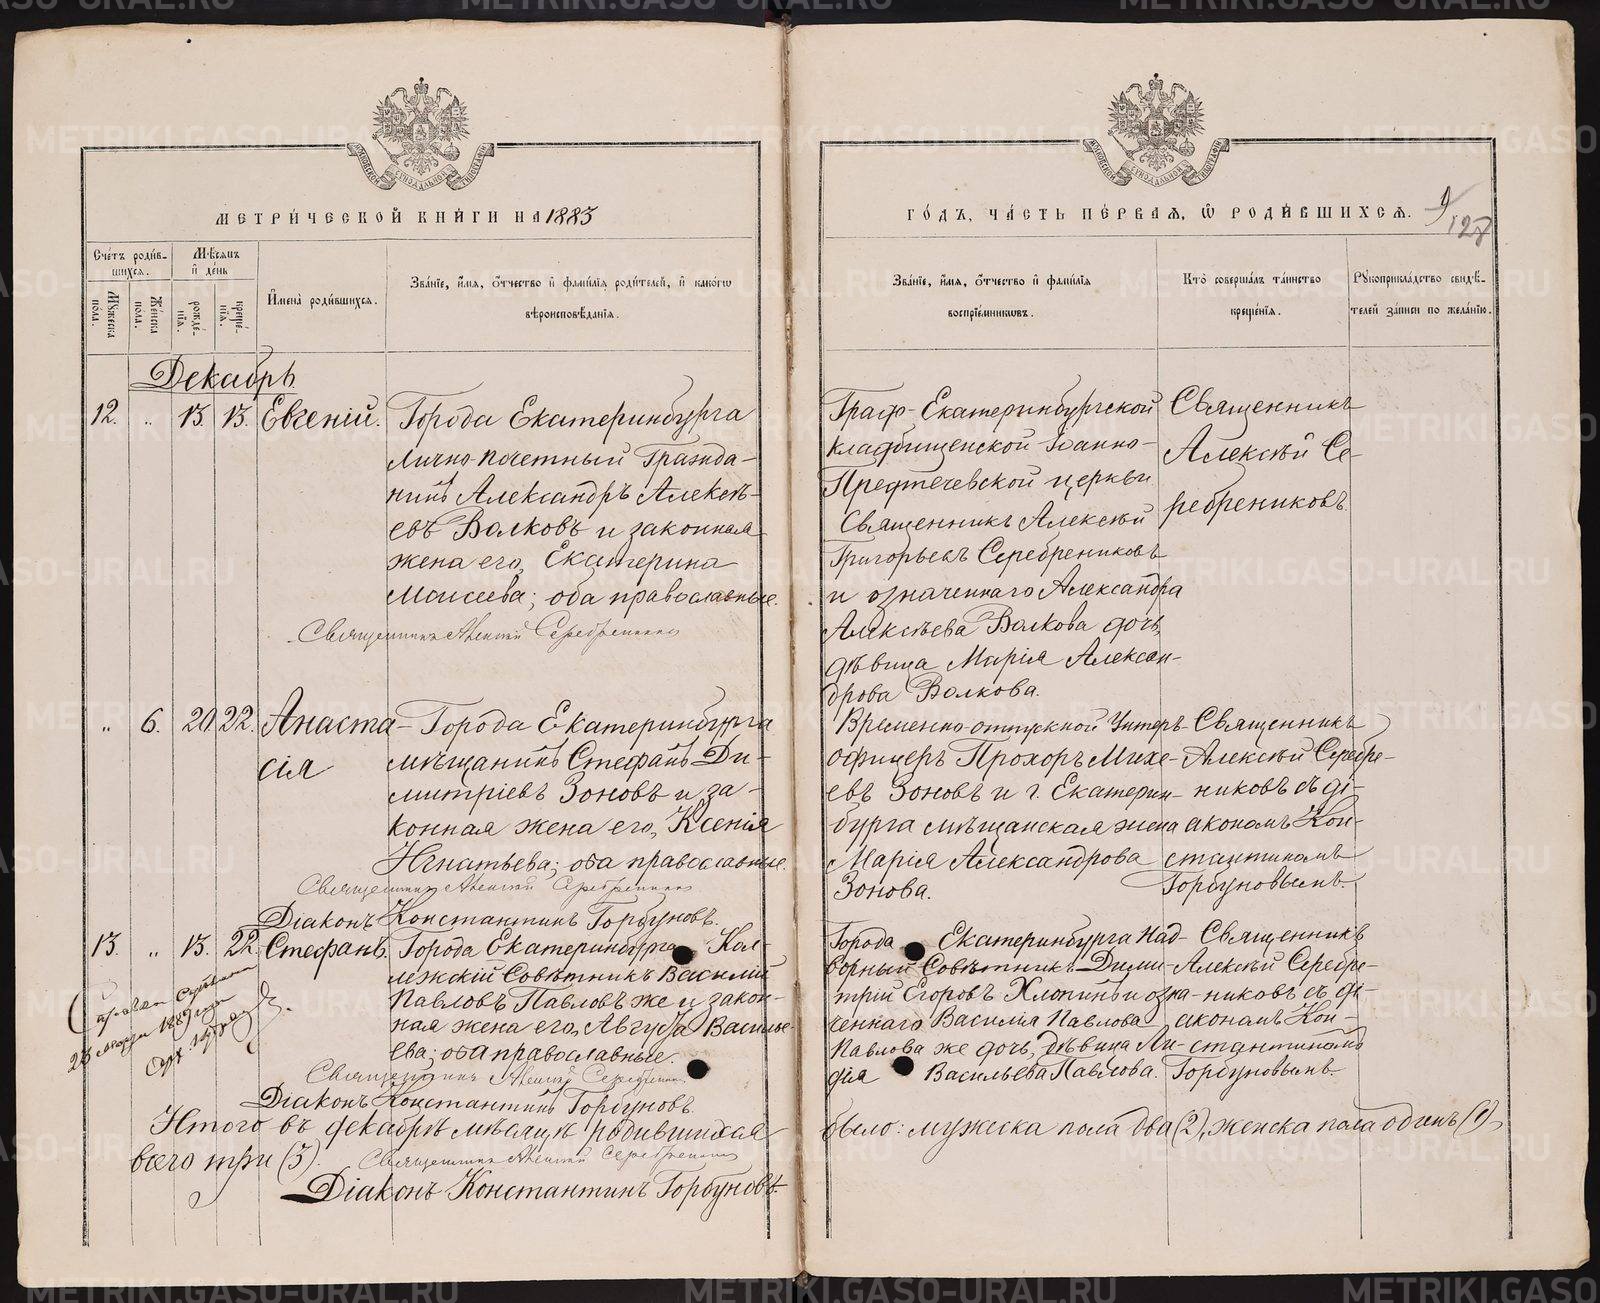 МЕТРИ́ЧЕСКОЙ КНИ́ГИ НА 1883
Сче́тъ роди́в-
шихся.
Мѣ́сяцъ
и҆ де́нь
Мꙋ́жеска
по́ла.
Же́нска
по́ла.
рожде́-
нїѧ.
креще́-
нїѧ.
И҆мена̀ роди́вшихся.
Зва́нїе, и҆́мя, ѻ҆́тчество и҆ фами́лїѧ роди́телей, и҆ како́гѡ
вѣроисповѣ́данїѧ.
Декабрь
12. „ 13. 13. Евгеній. Города Екатеринбурга
Лично-почетный Гражда-
нинъ Александръ Алексѣ-
евъ Волковъ и законная
жена его, Екатерина
Моисеева; оба православные.
Священникъ Алексѣй Серебренниковъ
„ 6. 20 22. Анаста- Города Екатеринбурга
сія мѣщанинъ Стефанъ Ди-
митріевъ Зоновъ и за-
конная жена его, Ксенія
Игнатьева; оба православные.
Священникъ Алексѣй Серебренниковъ
Діаконъ Константинъ Горбуновъ.
13. „ 13. 22. Стефанъ. Города Екатеринбурга Кол-
лежскій Совѣтникъ Василій
Павловъ Павловъ же и закон-
ная жена его, Августа Василь-
ева; оба православные.
Священникъ Алексѣй Серебренниковъ
Діаконъ Константинъ Горбуновъ.
Итого въ декабрѣ мѣсяцѣ родившихся
всего три (3).
Священникъ Алексѣй Серебренниковъ
Діаконъ Константинъ Горбуновъ.
ГО́ДЪ, ЧА́СТЬ ПЕ́РВАЯ, Ѡ҆ РОДИ́ВШИХСЯ.
127
Зва́нїе, и҆́мя, ѻ҆́тчество и҆ фами́лїѧ
воспрїе́мникѡвъ.
Кто̀ соверша́лъ та́инство
креще́нїѧ.
Рꙋкоприкла́дство свидѣ́-
телей за́писи по жела́нїю.
Граф- Екатеринбургской
кладбищенской Іоанно-
Предтечевской церкви
Священникъ Алексѣй
Григорьевъ Серебрениковъ
и означеннаго Александра
Алексѣева Волкова дочь,
дѣвица Марія Алексан-
дрова Волкова.
Священникъ
Алексѣй Се-
ребрениковъ.
Временно-отпускной Унтеръ-
офицеръ Прохоръ Михе-
евъ Зоновъ и г. Екатерин-
бурга мѣщанская жена
Марія Александрова
Зонова.
Священникъ
Алексѣй Серебре-
никовъ съ ді-
акономъ Кон-
стантиномъ
Горбуновымъ.
Города Екатеринбурга Над-
ворный Совѣтникъ Дими-
трій Егоровъ Хлопинъ и озна-
ченнаго Василія Павлова
Павлова же дочь, дѣвица Ли-
дія Васильева Павлова.
Священникъ
Алексѣй Серебре-
никовъ съ ді-
акономъ Кон-
стантиномъ
Горбуновымъ.
было: мужеска пола два (2), женска пола одинъ (1)
METRIKI.GASO-URAL.RU